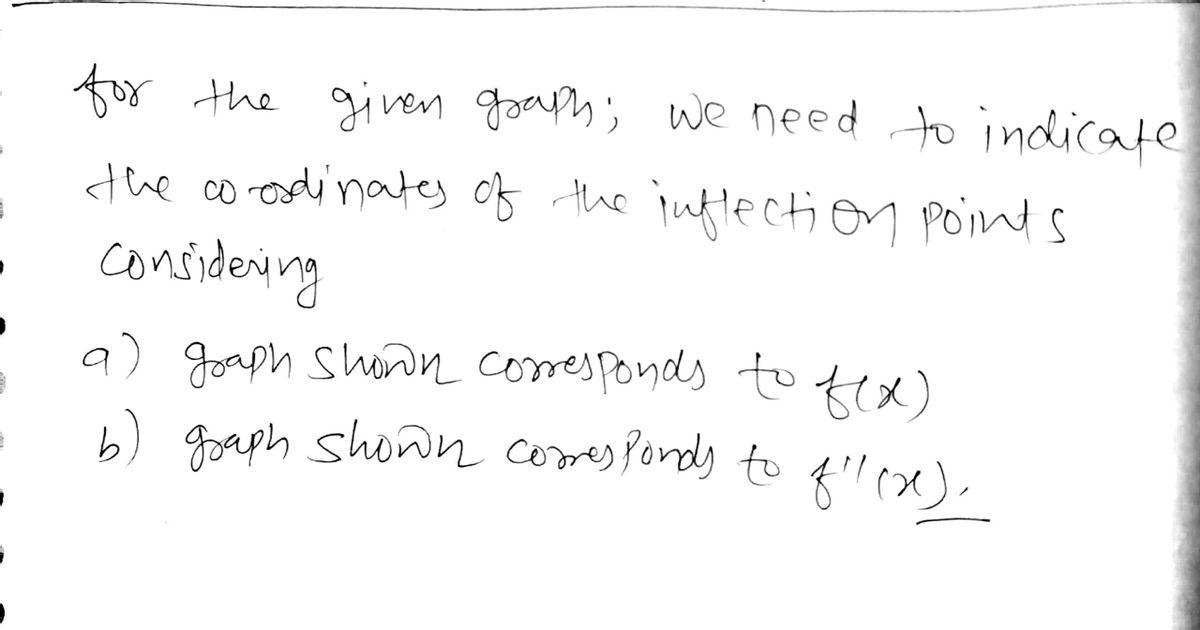 for the given graph; we need to indicate
the co-ordinates of the inflection points
considering
a) graph shown corresponds to f(x)
b) graph shown corresponds to f''(x).